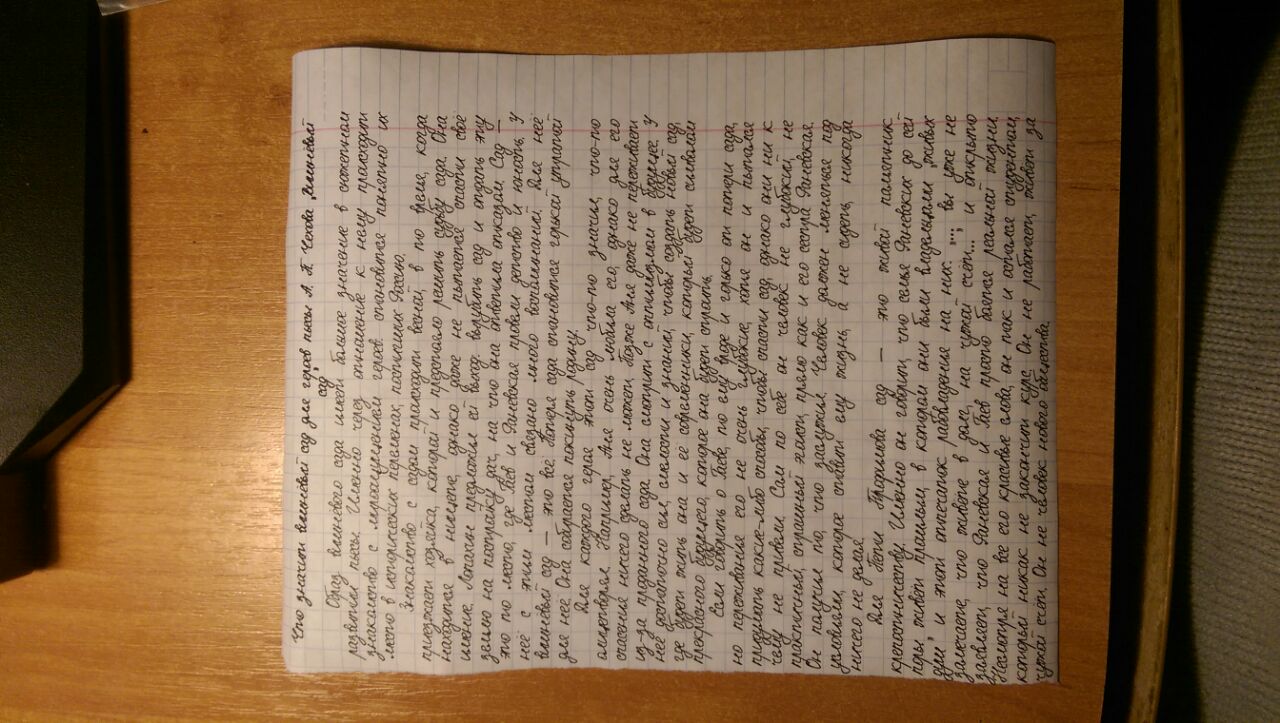 Что значит вишнёвый сад для героев пьесы А. П. Чехова „Вишнёвый
сад"
Образ вишневого сада имеет большое значение в сюжетном
развитии пьесы. Именно через отношение к нему происходит
знакомство с мироощущением героев, становится понятно их
место в исторических переменах, постигших Россию.
Знакомство с садом приходит весной, в то время, когда
приезжает хозяйка, которой и предстояло решить судьбу сада. Она
находится в нищете, однако даже не пытается спасти своё
имение. Лопахин предложил ей выход: вырубить сад и отдать эту
землю на постройку дач, на что она ответила отказом. Сад —
это то место, где Гаев и Раневская провели детство и юность, у
неё с этим местом связано много воспоминаний. Для неё
вишнёвый сад — это всё. Потеря сада становится горькой утратой
для неё. Она собирается покинуть родину.
Для каждого героя этот сад что-то значил, что-то
олицетворял. Например, Аня очень любила его, однако для его
спасения ничего сделать не может. Позже Аня даже не переживает
из-за проданного сада. Она смотрит с оптимизмом в будущее. У
неё достаточно сил, смелости и знаний, чтобы создать новый сад,
где будет жить она и её современники, который будет символом
прекрасного будущего, которое она будет строить.
Если говорить о Гаеве, то ему вроде и горько от потери сада,
но переживания его не очень глубокие, хотя он и пытался
придумать какие-либо способы, чтобы спасти сад, однако они ни к
чему не привели. Сам по себе он человек не глубокий, не
практичный, страшный эгоист, прямо как и его сестра Раневская.
Он получил то, что заслужил. Человек должен меняться под
условиями, которое ставит ему жизнь, а не сидеть, никогда
ничего не делая.
Для Пети Трофимова сад — это живой памятник
крепостничеству. Именно он говорит, что семья Раневских до сей
поры живёт прошлым, в котором они были владельцами „живых
душ", и этот отпечаток рабовладения на них: „..., вы уже не
замечаете, что живёте в долг, на чужой счёт..." и открыто
заявляет, что Раневская и Гаев просто боятся реальной жизни.
Несмотря на все его красивые слова, он так и остался студентом,
который никак не закончит курс. Он не работает, живёт за
чужой счёт. Он не человек нового общества.